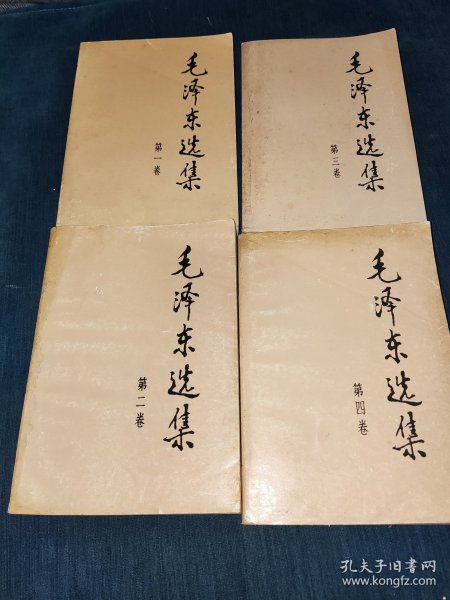 毛泽东选集
第一卷
毛泽东选集
第三卷
毛泽东选集
第二卷
毛泽东选集
第四卷
孔夫子旧书网
www.kongfz.com